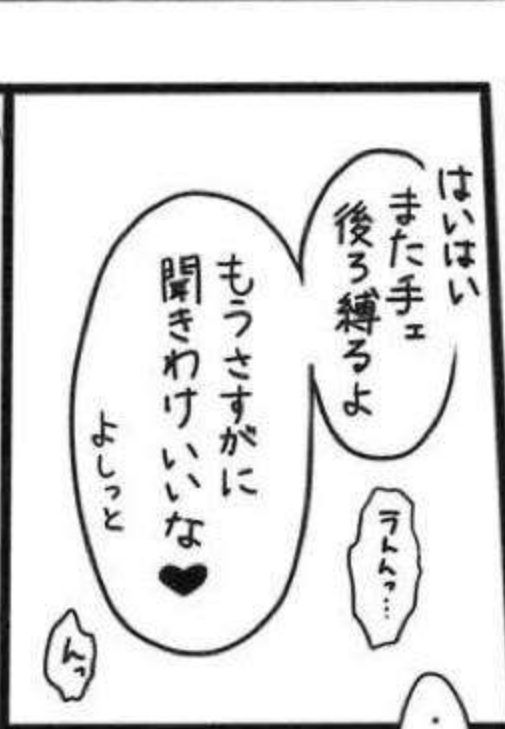 はいはい
また手ェ
後ろ縛るよ
もうさすがに
聞きわけいいな♥
よしっと
うんんっ…
んっ